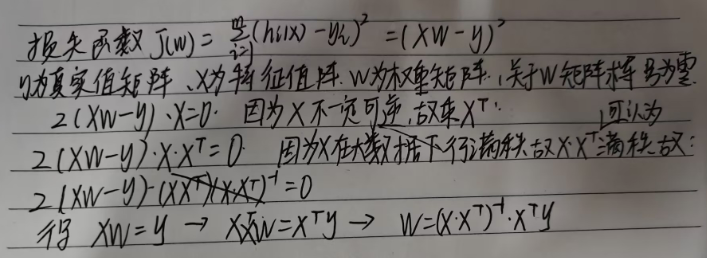 损失函数 J(w) = Σ_{i=1}^{m}(h(i)(x) - yi)² = (XW - y)²
y为真实值矩阵、X为特征值阵. W为权重矩阵. 关于W矩阵求导 另为零
2(XW-y)·X=0. 因为X不一定可逆,故乘Xᵀ: 可认为
2(XW-y)·X·Xᵀ=0 因为X在大数据下行满秩 故X·Xᵀ满秩 故:
2(XW-y)·(XXᵀ)(X·Xᵀ)⁻¹=0
得 XW=y → XXᵀW=Xᵀy → W=(X·Xᵀ)⁻¹·Xᵀy